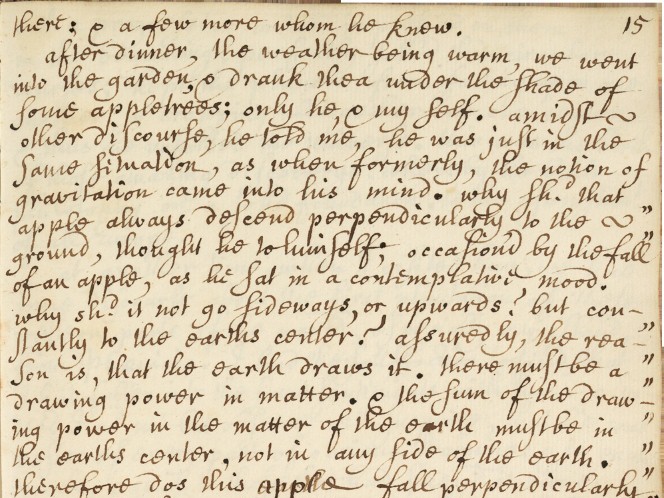 there; & a few more whom he knew. 15
after dinner, the weather being warm, we went
into the garden, & drank thea under the shade of
some appletrees; only he, & my self. amidst ~
other discourse, he told me, he was just in the
same situation, as when formerly, the notion of
gravitation came into his mind. why sh.d that
apple always descend perpendicularly to the ~ "
ground, thought he to himself; occasion'd by the fall "
of an apple, as he sat in a contemplative mood.
why sh.d it not go sideways, or upwards? but con-
stantly to the earths center? assuredly, the rea- "
son is, that the earth draws it. there must be a "
drawing power in matter. & the sum of the draw- "
ing power in the matter of the earth must be in "
the earths center, not in any side of the earth. "
therefore dos this apple fall perpendicularly "